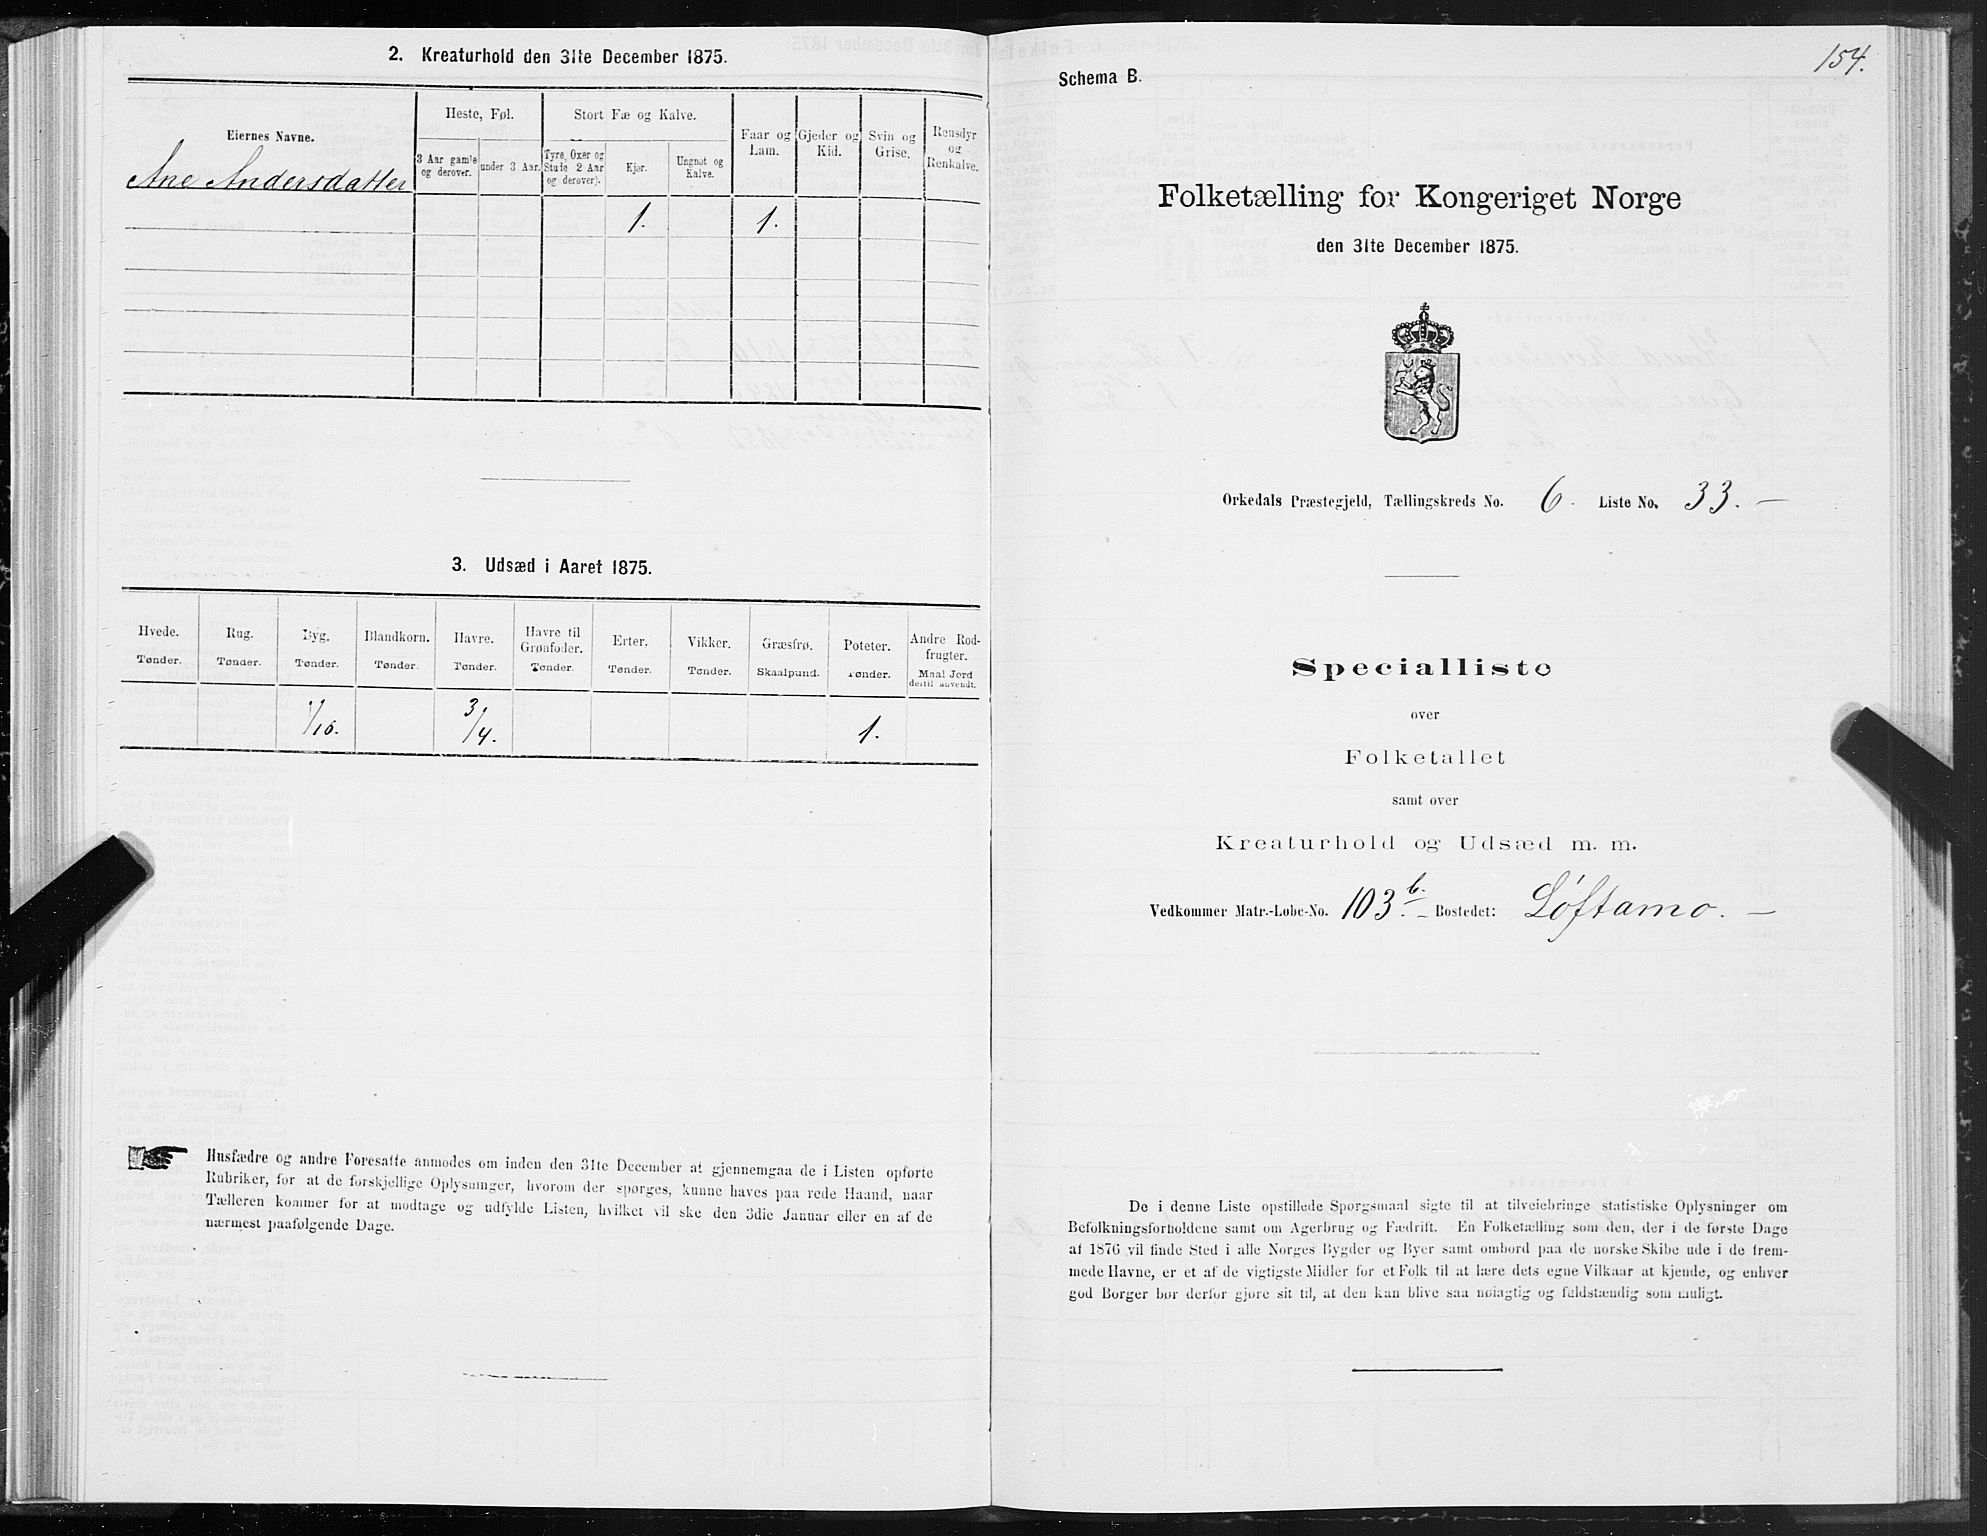 2. Kreaturhold den 31te December 1875.
Eiernes Navne.
Heste, Føl.
Stort Fæ og Kalve.
Faar og Lam.
Gjeder og Kid.
Svin og Grise.
Rensdyr og Renkalve.
3 Aar gamle og derover.
under 3 Aar.
Tyre, Oxer og Stude 2 Aar og derover).
Kjør.
Ungnøt og Kalve.
Ane Andersdatter
1. 1.
3. Udsæd i Aaret 1875.
Hvede. Rug. Byg. Blandkorn. Havre. Havre til Grønfoder. Erter. Vikker. Græsfrø. Poteter. Andre Rodfrugter.
Tønder. Tønder. Tønder. Tønder. Tønder. Tønder. Tønder. Tønder. Skaalpund. Tønder. Maal Jord dertil anvendt.
1/16. 3/4. 1.
Husfædre og andre Foresatte anmodes om inden den 31te December at gjennemgaa de i Listen opførte
Rubriker, for at de forskjellige Oplysninger, hvorom der spørges, kunne haves paa rede Haand, naar
Tælleren kommer for at modtage og udfylde Listen, hvilket vil ske den 3die Januar eller en af de
nærmest paafølgende Dage.
154.
Schema B.
Folketælling for Kongeriget Norge
den 31te December 1875.
Orkedals Præstegjeld, Tællingskreds No. 6. Liste No. 33. —
Specialliste
over
Folketallet
samt over
Kreaturhold og Udsæd m. m.
Vedkommer Matr.-Lobe-No. 103 b. – Bostedet: Løftamo. —
De i denne Liste opstillede Spørgsmaal sigte til at tilveiebringe statistiske Oplysninger om
Befolkningsforholdene samt om Agerbrug og Fædrift. En Folketælling som den, der i de første Dage
af 1876 vil finde Sted i alle Norges Bygder og Byer samt ombord paa de norske Skibe ude i de frem-
mede Havne, er et af de vigtigste Midler for et Folk til at lære dets egne Vilkaar at kjende, og enhver
god Borger bør derfor gjøre sit til, at den kan blive saa nøiagtig og fuldstændig som muligt.